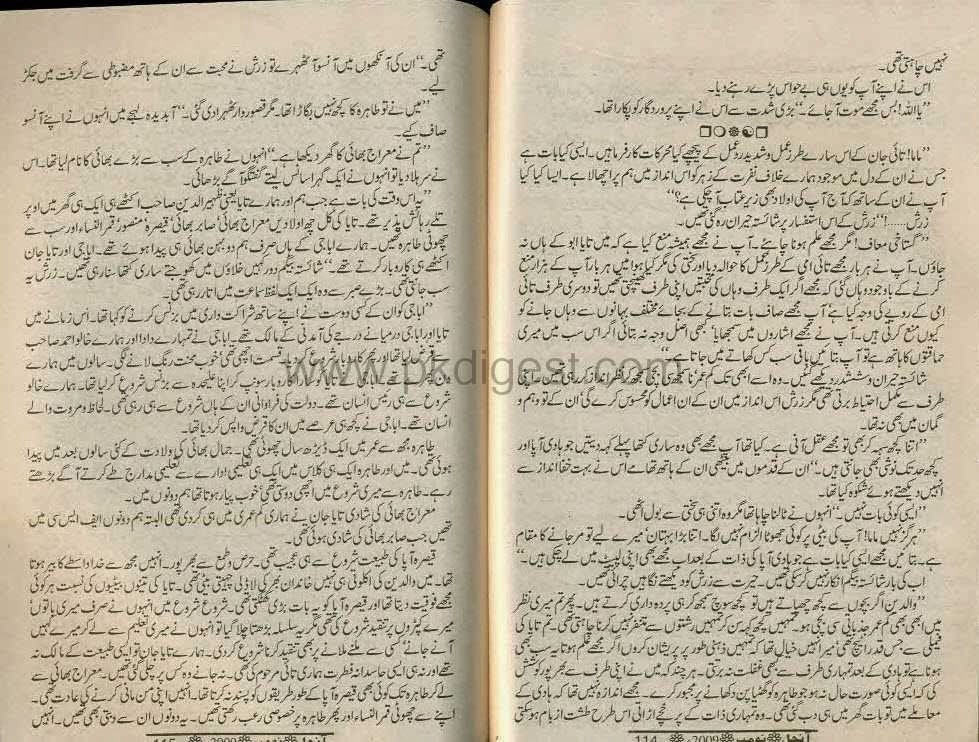 نہیں چاہتی تھی۔
اس نے اپنے آپ کو یوں ہی بے حواس پڑے رہنے دیا۔
”یا اللہ! بس مجھے موت آجائے۔“ بڑی شدت سے اس نے اپنے پروردگار کو پکارا تھا۔
”ماما! تائی جان کے اس سارے طرز عمل و شدید ردعمل کے پیچھے کیا محرکات کارفرما ہیں۔ ایسی کیا بات ہے
جس نے ان کے دل میں موجود ہمارے خلاف نفرت کے زہر کو اس انداز میں ہم پر اچھالا ہے۔ ایسا کیا کیا
آپ نے ان کے ساتھ کہ آج آپ کی اولاد بھی زیر عتاب آچکی ہے؟“
زرش......!“ زرش کے اس استفسار پر شائستہ حیران رہ گئی تھیں۔
”گستاخی معاف! مگر مجھے علم ہونا چاہئے۔ آپ نے مجھے ہمیشہ منع کیا ہے کہ میں تایا ابو کے ہاں نہ
جاؤں۔ آپ نے ہر بار مجھے تائی امی کے طرز عمل کا حوالہ دیا اور سختی کی مگر کیا ہوا میں ہر بار آپ کے ہزار منع
کرنے کے باوجود وہاں گئی کہ مجھے اگر ایک طرف وہاں کی محبتیں اپنی طرف کھینچتی تھیں تو دوسری طرف تائی
امی کے رویے کی وجہ کیا ہے آپ مجھے صاف بات بتانے کے بجائے مختلف بہانوں سے وہاں جانے کو
کیوں منع کرتی ہیں۔ آپ نے مجھے اشاروں میں سمجھایا‘ مجھے اصلی وجہ نہ بتائی اگر اس سب میں میری
حماقتوں کا ہاتھ ہے تو آپ بتائیں باقی سب کس کھاتے میں جاتا ہے۔“
شائستہ حیران و ششدر دیکھے گئیں۔ وہ اسے ابھی تک کم عمر نا سمجھ سی بچی سمجھ کر نظر انداز کر رہی تھیں۔ اپنی
طرف سے مکمل احتیاط برتی تھی مگر زرش اس انداز میں ان کے ان اعمال کو محسوس کرے گی ان کے تو وہم و
گمان میں بھی نہ تھا۔
”اتنا کچھ سہہ کر بھی تو مجھے عقل آنی ہے۔ کیا تھا آپ مجھے بھی وہ ساری کتھا پہلے کہہ دیتیں جو ہادی آپا اور
کچھ حد تک نوشی بھی جانتی ہیں۔“ ان کے قدموں میں بیٹھی ان کے ہاتھ تھامے اس نے بہت خفا انداز سے
انہیں دیکھتے ہوئے شکوہ کیا تھا۔
”ایسی کوئی بات نہیں۔“ انہوں نے ٹالنا چاہا تھا مگر وہ اتنی ہی سختی سے بول اٹھی۔
”ہرگز نہیں ماما! آپ کی بیٹی پر کوئی جھوٹا الزام نہیں لگا۔ اتنا بڑا بہتان‘ میرے لیے تو مر جانے کا مقام
ہے۔ بتائیں مجھے ایسی کیا بات ہے جو ہادی آپا کی ذات کے بعد اب مجھے بھی اپنی لپیٹ میں لے چکی ہیں۔“
اب کی بار شائستہ بیگم انکار نہیں کر سکی تھیں۔ حیرت سے زرش کو دیکھتے نگاہیں چرائی تھیں۔
”والدین اگر بچوں سے کچھ چھپاتے ہیں تو کچھ سوچ سمجھ کر ہی پردہ داری کرتے ہیں۔ پھر تم میری نظر
میں ابھی بھی کم عمر جذباتی سی بچی ہو۔ تمہیں کچھ کہہ سن کر تمہیں رشتوں سے متنفر نہیں کرنا چاہتی تھی۔ تم تایا کی
فیملی سے جس قدر اٹیچ تھی میرا نہیں خیال تھا کہ تمہیں ذہنی طور پر پریشان کروں اگر مجھے علم ہوتا یہ سب بھی
ہونا ہے تو ہادی کے بعد تمہاری طرف سے کبھی غفلت نہ برتتی۔ ہر چند کہ میں نے اپنی طرف سے بھرپور کوشش
کی کہ ایسی کوئی صورت حال نہ ہو جو طاہرہ کو گھٹیا پن دکھانے پر مجبور کرے۔ مجھے اندازہ نہیں تھا کہ ہادی کے
معاملے میں تو بات گھر میں ہی دب گئی تھی۔ وہ تمہاری ذات کے پرخچے اڑاتی اس طرح طشت از بام ہو سکتی
آنچل نومبر 2009ء 114
تھی۔“ ان کی آنکھوں میں آنسو آ ٹھہرے تو زرش نے محبت سے ان کے ہاتھ مضبوطی سے گرفت میں جکڑ
لیے۔
”میں نے تو طاہرہ کا کچھ نہیں بگاڑا تھا۔ مگر قصوروار ٹھہرا دی گئی۔“ آبدیدہ لہجے میں انہوں نے اپنے آنسو
صاف کیے۔
”تم نے معراج بھائی کا گھر دیکھا ہے۔“ انہوں نے طاہرہ کے سب سے بڑے بھائی کا نام لیا تھا۔ اس
نے سر ہلا دیا تو انہوں نے ایک گہرا سانس لیتے گفتگو آگے بڑھائی۔
”یہ اس وقت کی بات ہے جب ہم اور ہمارے تایا یعنی ظہیر الدین صاحب اکٹھے ہی ایک ہی گھر میں اوپر
تلے رہائش پذیر تھے۔ تایا کی کل چھ اولادیں‘ معراج بھائی‘ صابر بھائی‘ قیصرہ‘ منصور‘ قمر النساء اور سب سے
چھوٹی طاہرہ تھیں۔ ہمارے اباجی کے ہاں صرف ہم دو بہن بھائی ہی پیدا ہوئے تھے۔ اباجی اور تایا جان
اکٹھے ہی کاروبار کرتے تھے۔“ شائستہ بیگم دور کہیں خلاؤں میں کھوجتے ساری کتھا سنا رہی تھیں۔ زرش یہ
سب جانتی تھی۔ بڑے صبر سے وہ ایک ایک لفظ سماعت میں اتار رہی تھی۔
”اباجی کو ان کے کسی دوست نے اپنے ساتھ شراکت داری میں بزنس کرنے کو کہا تھا۔ اُس زمانے میں
تایا اور اباجی درمیانے درجے کی آمدنی کے مالک تھے۔ اباجی نے تمہارے دادا اور ہمارے خالو احمد صاحب
سے قرض لیا تھا اور پھر کاروبار شروع کر دیا۔ قسمت اچھی تھی‘ خوب محنت رنگ لانے لگی۔ سالوں میں ہمارے
دن پھرے تھے۔ اباجی نے تایا کو پرانا کاروبار سونپ کر اپنا علیحدہ سے بزنس شروع کر لیا تھا۔ ہمارے خالو
شروع سے ہی رئیس انسان تھے۔ دولت کی فراوانی ان کے ہاں شروع سے ہی رہی تھی۔ لحاظ و مروت والے
انسان تھے۔ اباجی نے کچھ ہی عرصے میں ان کا قرض واپس کر دیا تھا۔
طاہرہ مجھ سے عمر میں ایک ڈیڑھ سال چھوٹی تھی۔ جمال بھائی کی ولادت کے کئی سالوں بعد میں پیدا
ہوئی تھی۔ میں اور طاہرہ ایک ہی کلاس میں ایک ہی تعلیمی ادارے سے تعلیمی مدارج طے کرتے آگے بڑھتے
رہے۔ طاہرہ سے میری شروع میں اچھی دوستی تھی‘ خوب پیار ہوتا تھا ہم دونوں میں۔
معراج بھائی کی شادی تایا جان نے ہماری کم عمری میں ہی کر دی تھی البتہ ہم دونوں ایف ایس سی میں
تھیں جب صابر بھائی کی شادی ہوئی تھی۔
قیصرہ آپا کی طبیعت شروع سے ہی عجیب تھی۔ حرص و طمع سے بھرپور۔ انہیں مجھ سے خدا واسطے کا بیر ہوتا
تھا۔ میں والدین کی اکلوتی ہی نہیں خاندان بھر کی لاڈلی چہیتی بیٹی تھی۔ تایا کی تینوں بیٹیوں کی نسبت ہر کوئی
مجھے فوقیت دیتا تھا اور قیصرہ آپا کو یہ بات بڑی کھٹکتی تھی۔ شروع شروع میں انہوں نے صرف میری باتوں‘
میرے کپڑوں پر تنقید شروع کی تھی مگر یہ سلسلہ بڑھتا چلا گیا تو انہوں نے میری تعلیم سے لے کر میرے کہیں
آنے جانے کسی سے ملنے ملانے پر بھی تنقید کرنا شروع کر دی۔ ہمارے تایا جان تو ایسی طبیعت کے مالک نہ
تھے اور نہ ہی ایسی حاسدانہ فطرت ہماری تائی مرحومہ کی تھی۔ نہ جانے وہ کس پر چلی گئی تھیں۔ معراج بھائی سے
لے کر طاہرہ تک کوئی بھی قیصرہ آپا کے طور طریقوں کو پسند نہ کرتا تھا۔ انہیں اپنی من مانی کرنے کی عادت تھی۔
اپنے سے چھوٹی قمر النساء اور پھر طاہرہ پر خصوصی رعب رکھتی تھیں۔ یہ دونوں ان سے دبتی بھی تھیں۔ انہیں
آنچل نومبر 2009ء 115
www.pkdigest.com